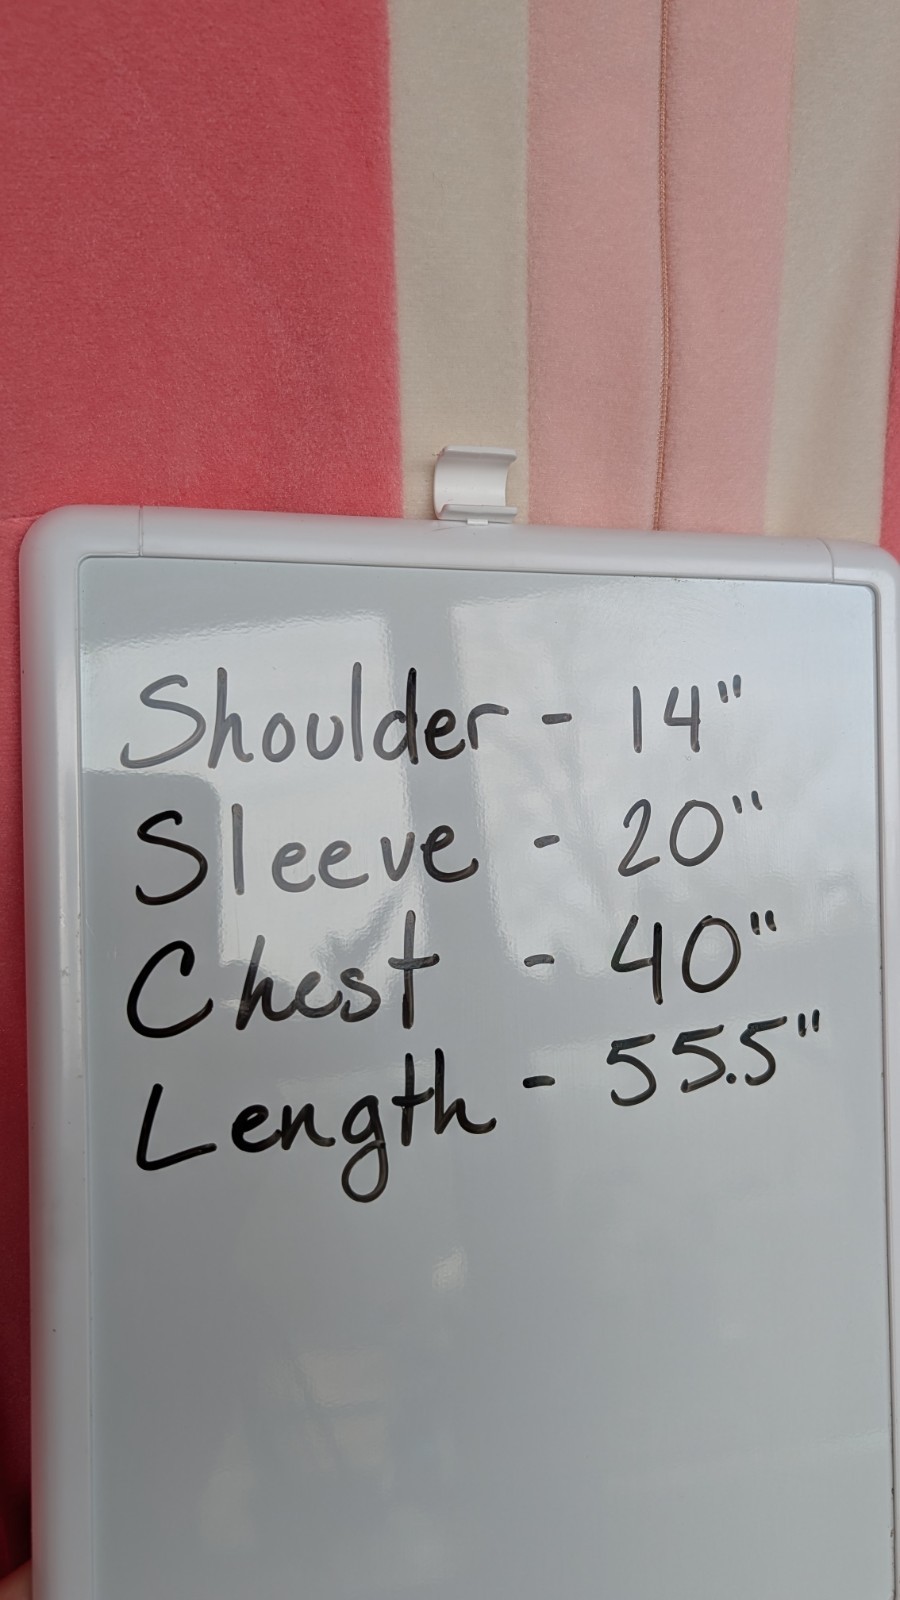 Shoulder - 14"
Sleeve - 20"
Chest - 40"
Length - 55.5"